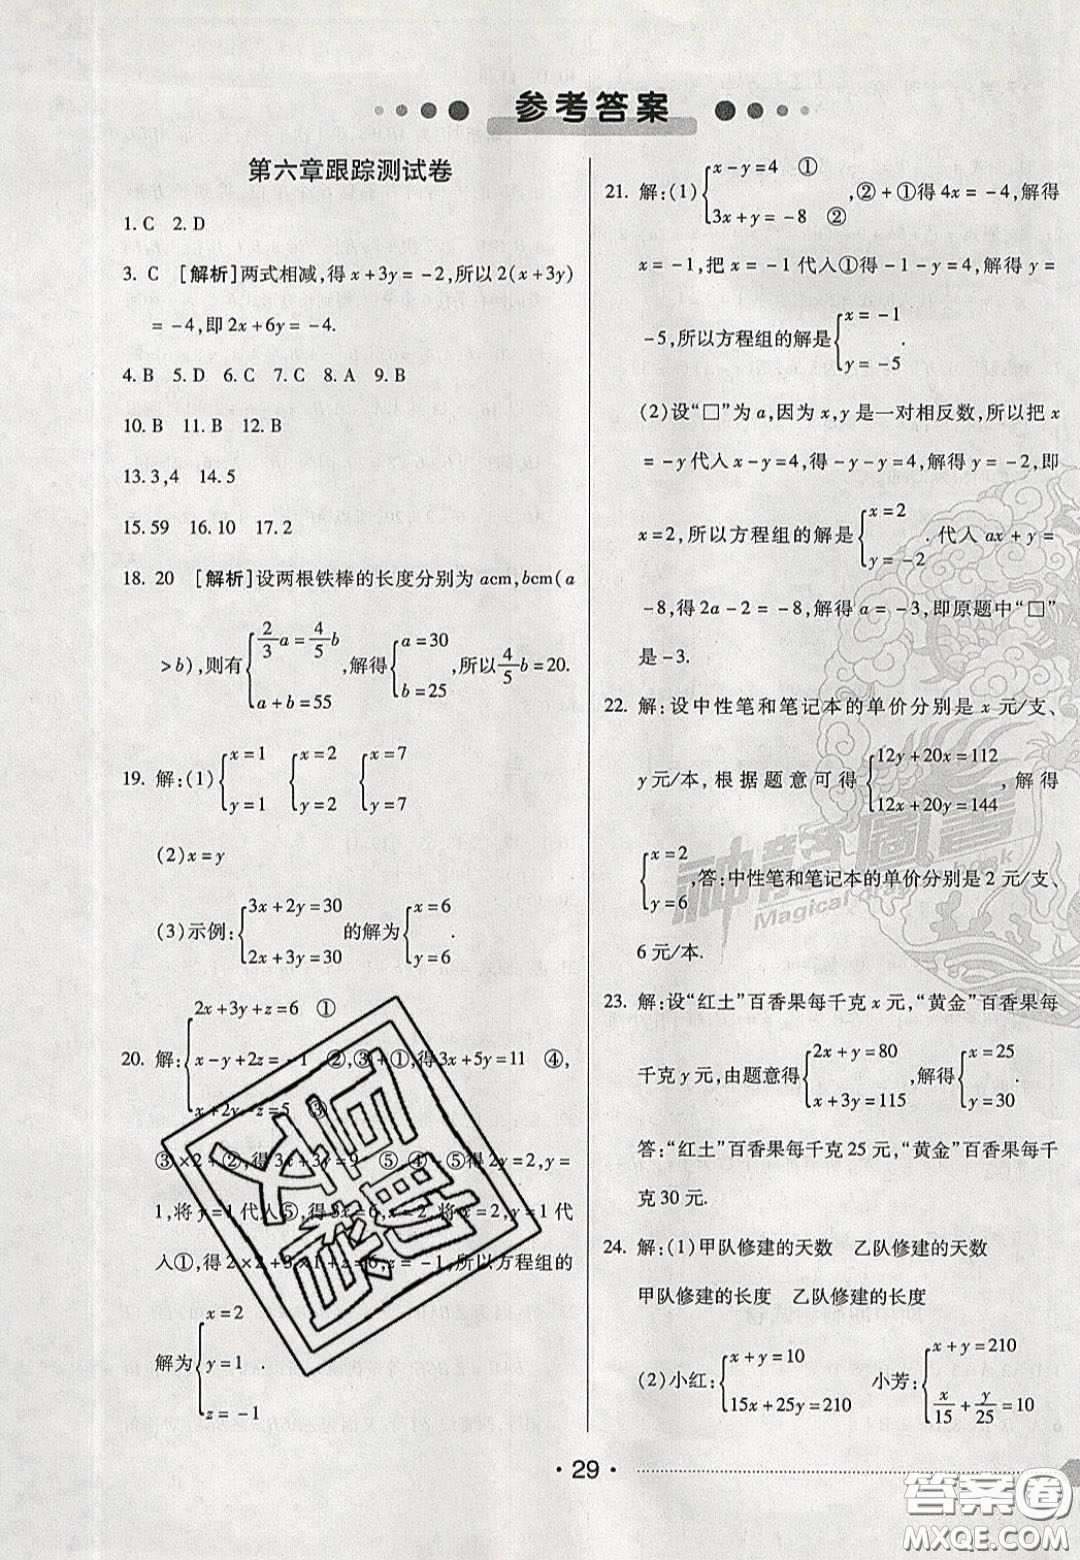 参考答案
第六章跟踪测试卷
1. C 2. D
3. C [解析]两式相减,得x+3y=-2,所以2(x+3y)
=-4,即2x+6y=-4.
4. B 5. D 6. C 7. C 8. A 9. B
10. B 11. B 12. B
13. 3,4 14. 5
15. 59 16. 10 17. 2
18. 20 [解析]设两根铁棒的长度分别为acm,bcm(a
>b),则有{2/3 a=4/5 b a+b=55,解得{a=30 b=25,所以4/5 b=20.
19. 解:(1){x=1 y=1 {x=2 y=2 {x=7 y=7
(2)x=y
(3)示例:{3x+2y=30 2x+3y=30的解为{x=6 y=6.
20. 解:{2x+3y+z=6 ① x-y+2z=-1 ② x+2y-z=5 ③,③+①,得3x+5y=11 ④,
③×2+②,得3x+3y=9 ⑤,④-⑤得2y=2,y=
1,将y=1代入⑤,得3x=6,x=2,将x=2,y=1代
入①,得2×2+3×1+z=6,z=-1,所以方程组的
解为{x=2 y=1 z=-1.
21. 解:(1){x-y=4 ① 3x+y=-8 ②,②+①得4x=-4,解得
x=-1,把x=-1代入①得-1-y=4,解得y=
-5,所以方程组的解是{x=-1 y=-5.
(2)设“□”为a,因为x,y是一对相反数,所以把x
=-y代入x-y=4,得-y-y=4,解得y=-2,即
x=2,所以方程组的解是{x=2 y=-2.代入ax+y=
-8,得2a-2=-8,解得a=-3,即原题中“□”
是-3.
22. 解:设中性笔和笔记本的单价分别是x元/支、
y元/本,根据题意可得{12y+20x=112 12x+20y=144,解得
{x=2 y=6,答:中性笔和笔记本的单价分别是2元/支、
6元/本.
23. 解:设“红土”百香果每千克x元,“黄金”百香果每
千克y元,由题意得{2x+y=80 x+3y=115,解得{x=25 y=30.
答:“红土”百香果每千克25元,“黄金”百香果每千
克30元.
24. 解:(1)甲队修建的天数 乙队修建的天数
甲队修建的长度 乙队修建的长度
(2)小红:{x+y=10 15x+25y=210 小芳:{x+y=210 x/15+y/25=10
·29·
神龙图书
Magical
book
答案圈
MXQE.COM